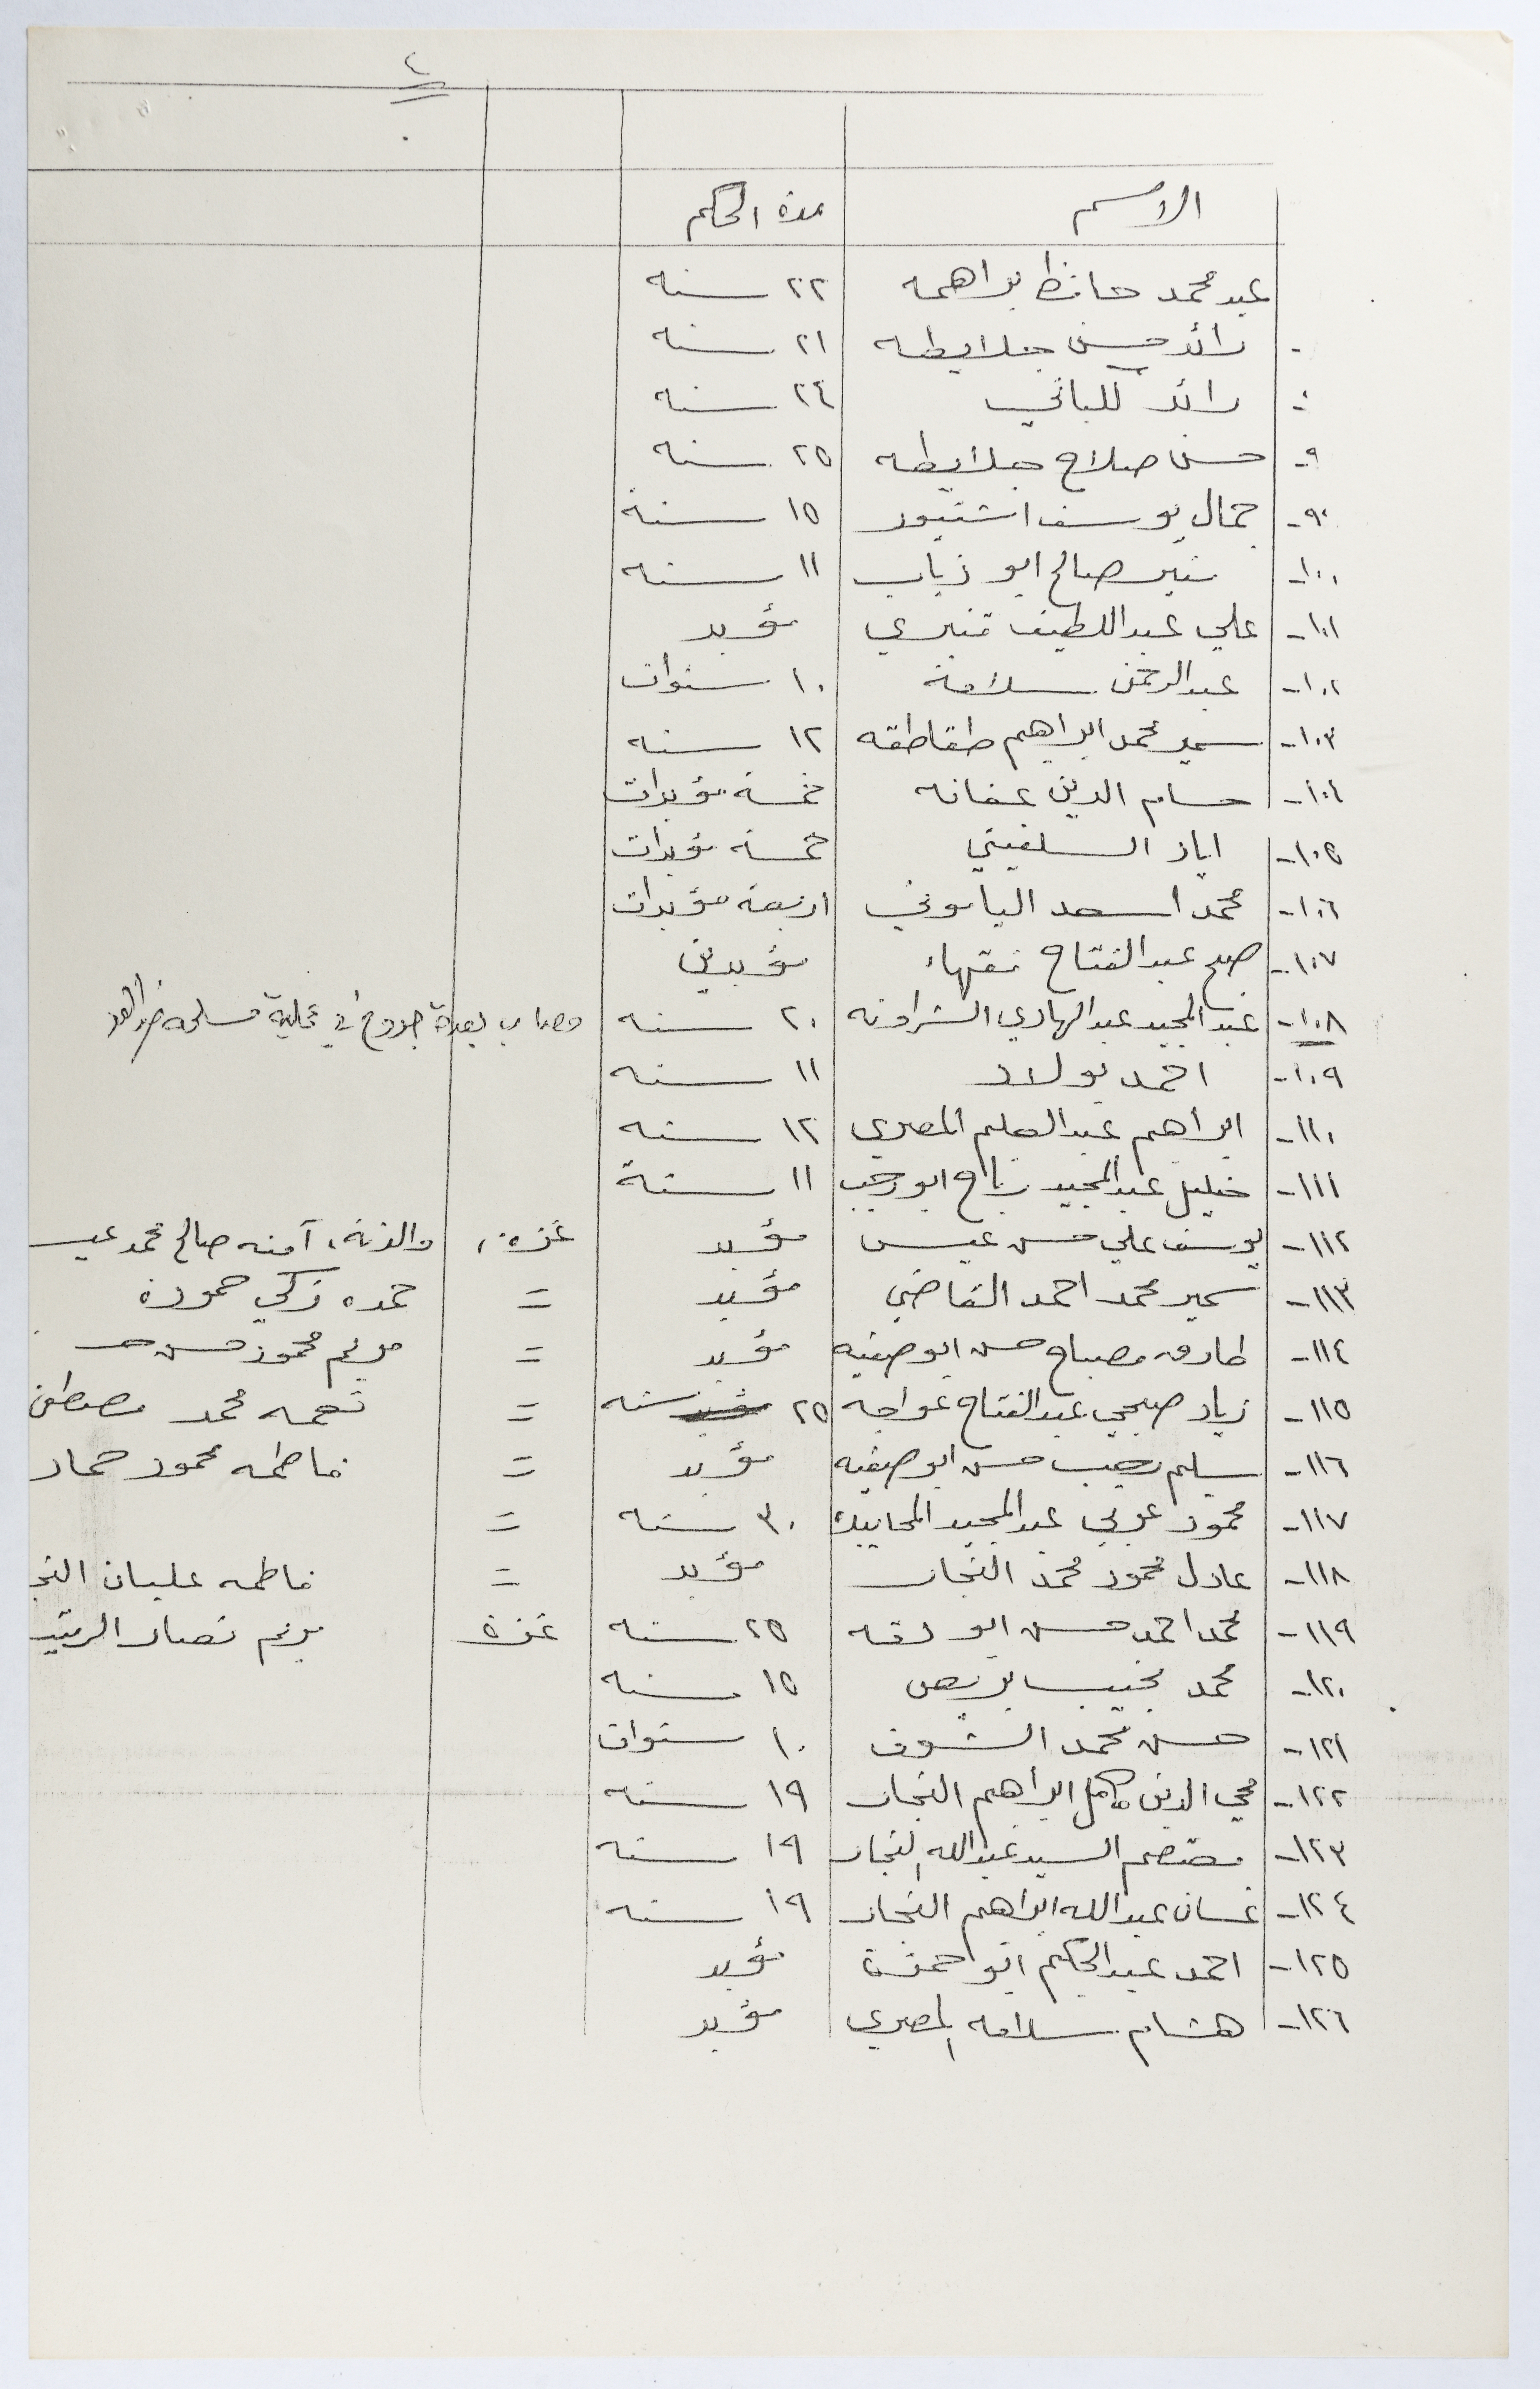 ٤
الاسم مدة الحكم
عبد محمد حافظ براهمه ٢٢ سنه
رائد حسن جلايطه ٢١ سنه
رائد ٢٤ سنه
٩- حسن صلاح جلايطه ٢٥ سنه
٩٠- جمال يوسف اشتيور ١٥ سنة
١٠٠- صالح ابو ذياب ١١ سنه
١٠١- علي عبد اللطيف قنيري مؤبد
١٠٢- عبد الرحمن سلامة ١٠ سنوات
١٠٣- سمير محمد ابراهيم طقاطقه ١٢ سنه
١٠٤- حسام الدين عفانه خمسة مؤبدات
١٠٥- اياد السلفيتي خمسة مؤبدات
١٠٦- محمد اسعد الياموني اربعة مؤبدات
١٠٧- عبد الفتاح نقهاء مؤبدين
١٠٨- عبد المجيد عبد الهادي الشراونه ٢٠ سنه مصاب بعدة جروح في عملية مسلحه
١٠٩- احمد بولاد ١١ سنه
١١٠- ابراهيم عبد الحليم المصري ١٢ سنه
١١١- خليل عبد المجيد رباح ابو رجب ١١ سنة
١١٢- يوسف علي حسن عيسى مؤبد غزة، والدته، آمنه صالح محمد عيسـ
١١٣- سمير محمد احمد القاضي مؤبد = حمده زكي حمودة
١١٤- طارق مصباح حسن ابو صفيه مؤبد = مريم محمود حسن حـ
١١٥- زياد صبحي عبد الفتاح عواجه ٢٥ سنه = نعمه محمد مصطفى
١١٦- سليم رجب حسن ابو صفيه مؤبد = فاطمه محمود حماد
١١٧- محمود عربي عبد المجيد المحاييك ٣٠ سنه =
١١٨- عادل محمود محمد النجار مؤبد = فاطمه عليان النجـ
١١٩- محمد احمد حسن ابو دقه ٢٥ سنه غزة مريم نصار الرتيـ
١٢٠- محمد نجيب بريص ١٥ سنه
١٢١- حسن محمد الشوف ١٠ سنوات
١٢٢- محي الدين كامل ابراهيم النجار ١٩ سنه
١٢٣- معتصم السيد عبد الله النجار ١٩ سنه
١٢٤- غسان عبد الله ابراهيم النجار ١٩ سنه
١٢٥- احمد عبد الحكيم ابو حمزة مؤبد
١٢٦- هشام سلامه المصري مؤبد